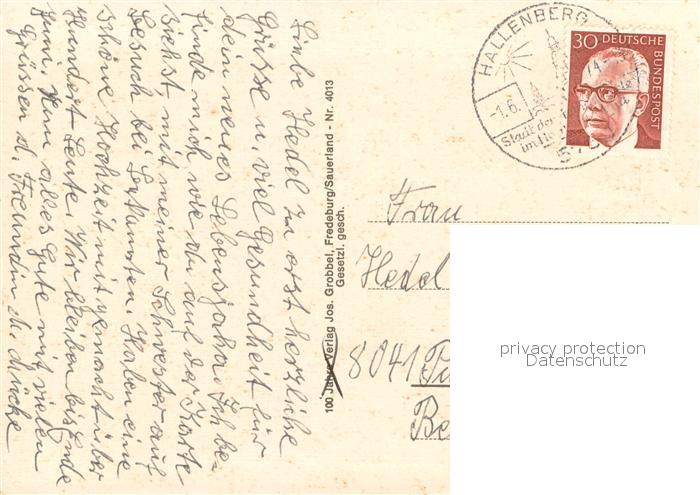 Liebe Hedel zu erst herzliche
Grüsse u. viel Gesundheit für
dein neues Lebensjahr. Ich be-
finde mich wie du auf der Karte
siehst, mit meiner Schwester auf
Besuch bei Bekannten. Haben eine
schöne Hochzeit mit gemacht über
Hundert Leute. Wir bleiben bis Ende
Juni. Nun alles Gute mit vielen
Grüssen d. Freundin
100 Jahre Verlag Jos. Grobbel, Fredeburg/Sauerland - Nr. 4013
Gesetzl. gesch.
HALLENBERG
-1.6.
Stadt der
im
57
30 DEUTSCHE
BUNDESPOST
Frau
Hedel
8041
privacy protection
Datenschutz